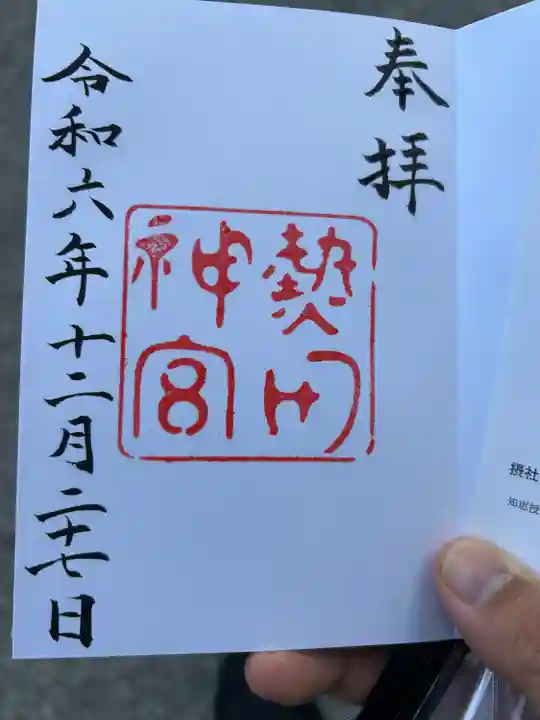 奉拝
熱田
神宮
令和六年十二月二十七日
摂社